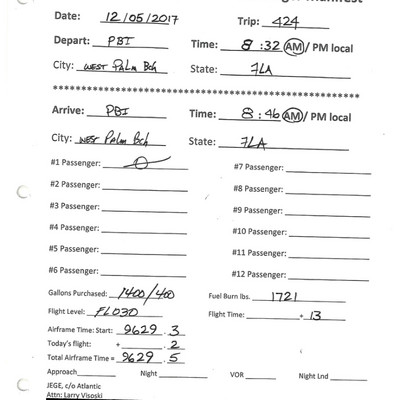 Manifest
Date: 12/05/2017 Trip: 424
Depart: PBI Time: 8:32 AM / PM local
City: West Palm Bch State: FLA
**************************************************
Arrive: PBI Time: 8:46 AM / PM local
City: West Palm Bch State: FLA
#1 Passenger: Ø #7 Passenger:
#2 Passenger: #8 Passenger:
#3 Passenger: #9 Passenger:
#4 Passenger: #10 Passenger:
#5 Passenger: #11 Passenger:
#6 Passenger: #12 Passenger:
Gallons Purchased: 1400/400 Fuel Burn lbs. 1721
Flight Level: FL030 Flight Time: + 13
Airframe Time: Start: 9629.3
Today's flight: + .2
Total Airframe Time = 9629.5
Approach Night VOR Night Lnd
JEGE, c/o Atlantic
Attn: Larry Visoski